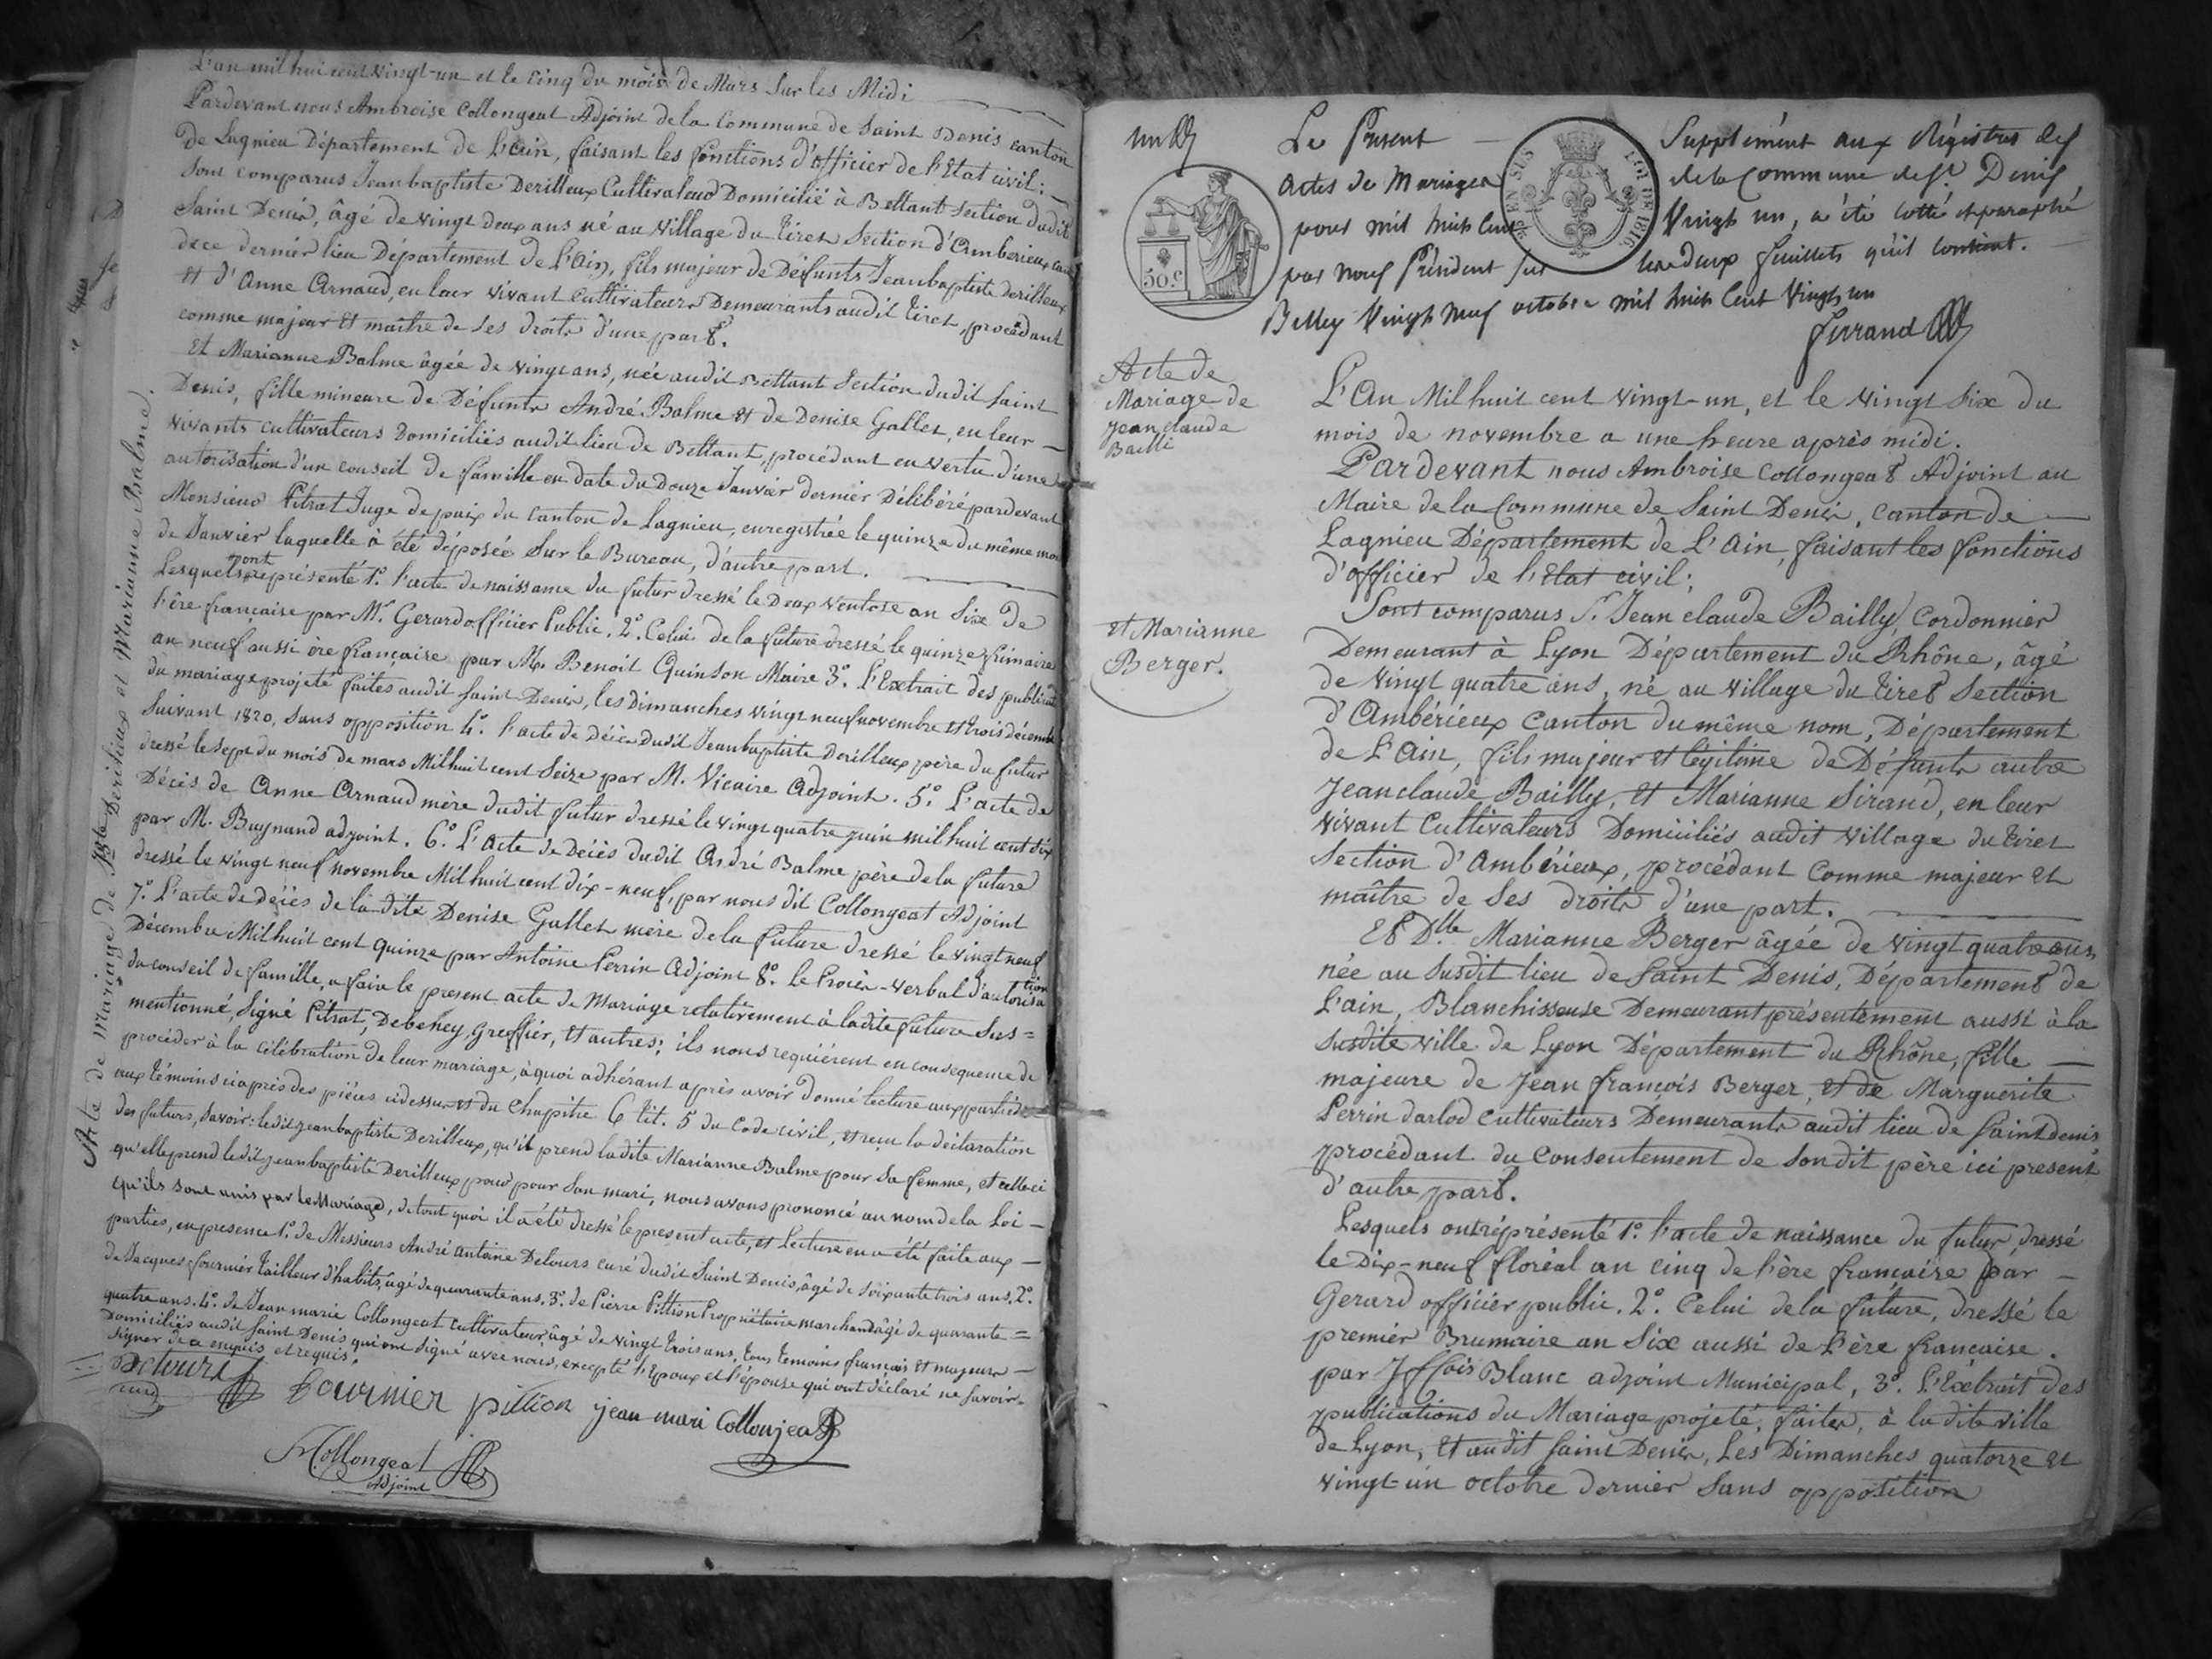 L'an mil huit cent vingt-un et le cinq du mois de Mars sur les Midi
Pardevant nous Ambroise Collongeat Adjoint de la Commune de Saint Denis canton
de Lagnieu Département de L'Ain, faisant les fonctions d'officier de l'Etat civil;
Sont comparus Jean baptiste Derilleux Cultivateur Domicilié à Bettant Section dudit
Saint Denis, âgé de vingt deux ans né au Village du Tiret Section d'Amberieux
de ce dernier lieu Département de L'Ain, fils majeur de Défunts Jean baptiste Derilleux
et d'Anne Arnaud, en leur vivant Cultivateurs Demeurants audit Tiret, procédant
comme majeur et maître de ses droits d'une part.
Et Marianne Balme âgée de vingt ans, née audit Bettant Section dudit Saint
Denis, fille mineure de Défunts André Balme et de Denise Gallet, en leur
vivants cultivateurs Domiciliés audit lieu de Bettant, procédant en vertu d'une
autorisation d'un conseil de famille en date du Douze Janvier dernier Délibéré pardevant
Monsieur Pitrat Juge de paix du Canton de Lagnieu, enregistrée le quinze du même mois
de Janvier laquelle à été déposée sur le Bureau, d'autre part.
Lesquels ont représenté 1°. l'acte de naissance du futur dressé le Deux Ventose an Six de
l'ère française par Mr. Gerard officier Public. 2°. Celui de la future dressé le quinze frimaire
an neuf aussi ère française par M. Benoit Quinson Maire 3°. L'Extrait des publications
du mariage projeté faites audit Saint Denis, les Dimanches vingt neuf novembre et trois décembre
Suivant 1820, sans opposition 4°. l'acte de Décès dudit Jean baptiste Derilleux père du futur
dressé le sept du mois de mars Mil huit cent Seize par M. Vicaire Adjoint. 5°. L'acte de
Décès de Anne Arnaud mère dudit futur dressé le vingt quatre juin mil huit cent dix
par M. Buynand adjoint. 6°. L'Acte de Décès dudit André Balme père de la future
dressé le vingt neuf novembre Mil huit cent dix-neuf, par nous dit Collongeat Adjoint
7°. L'acte de décès de la dite Denise Gallet mère de la future dressé le vingt neuf
Décembre Mil huit cent quinze par Antoine Perrin Adjoint 8°. Le Procès-verbal d'autorisation
du conseil de famille, a faire le present acte de Mariage relativement à ladite future Sus=
mentionné, Signé Pitrat, Debeney Greffier, et autres; ils nous requièrent en consequence de
procéder à la célébration de leur mariage, à quoi adhérant après avoir donné lecture aux parties
aux témoins ci après des pièces ci dessus et du Chapitre 6 tit. 5 du Code civil, et reçu la déclaration
des futurs, savoir: ledit jean baptiste Derilleux, qu'il prend ladite Marianne Balme pour Sa femme, et celle ci
qu'elle prend ledit jean baptiste Derilleux pour pour Son mari, nous avons prononcé au nom de la Loi -
qu'ils sont unis par le Mariage, de tout quoi il a été dressé le present acte, et Lecture en a été faite aux -
parties, en presence 1°. de Messieurs André antoine Detours curé dudit Saint Denis, âgé de Soixante trois ans, 2°.
de Jacques fournier tailleur d'habits, âgé de quarante ans. 3°. de Pierre Pittion Propriétaire marchand âgé de quarante =
quatre ans. 4°. de Jean marie Collongeat Cultivateur âgé de vingt trois ans, tous temoins français et majeurs -
Domiciliés audit Saint Denis qui ont signé avec nous, excepté l'Epoux et l'épouse qui ont déclaré ne savoir
signer de ce enquis et requis.
Detours
curé
fournier
pittion
jean mari Collonjeat
Collongeat
Adjoint
Acte de Mariage de Jn. Bte. Derilleux et Marianne Balme.
un
50.c
Le Present Supplément aux Régistres des
actes de Mariages de la Commune de St. Denis
pour mil huit cent Vingt un, a été cotté et paraphé
par nous Président sur les deux feuillets qu'il contient.
Belley Vingt neuf octobre mil huit Cent Vingt un
Ferrand
Acte de
Mariage de
Jean claude
Bailli
et Marianne
Berger.
L'An Mil huit cent vingt-un, et le vingt six du
mois de novembre a une heure après midi.
Pardevant nous Ambroise Collongeat Adjoint au
Maire de la Commune de Saint Denis, canton de
Lagnieu Département de L'Ain, faisant les fonctions
d'officier de l'Etat civil;
Sont comparus S. Jean claude Bailly, Cordonnier
Demeurant à Lyon Département du Rhône, âgé
de vingt quatre ans, né au village du Tiret Section
d'Ambérieux canton du même nom, Département
de L'Ain, fils majeur et légitime de Défunts autre
Jean claude Bailly, et Marianne Sirand, en leur
vivant Cultivateurs Domiciliés audit village du Tiret
Section d'Ambérieux, procédant Comme majeur et
maître de Ses droits d'une part.
Et Dlle Marianne Berger âgée de vingt quatre ans,
née au Susdit lieu de Saint Denis, Département de
L'ain, Blanchisseuse Demeurant présentement aussi à la
susdite ville de Lyon Département du Rhône, fille -
majeure de Jean françois Berger, et de Marguerite
Perrin darlod Cultivateurs Demeurants audit lieu de Saint denis
procédant du Consentement de Son dit père ici présent
d'autre part.
Lesquels ont réprésenté 1°. l'acte de naissance du futur, dressé
le Dix-neuf floréal an cinq de l'ère française par -
Gerard officier public. 2°. Celui de la future, dressé le
premier Brumaire an Six aussi de l'ère francaise.
par Jn fçois Blanc adjoint Municipal, 3°. L'Extrait des
publications du Mariage projeté, faites, à la dite ville
de Lyon, et audit Saint Denis, Les Dimanches quatorze et
vingt-un octobre dernier Sans opposition